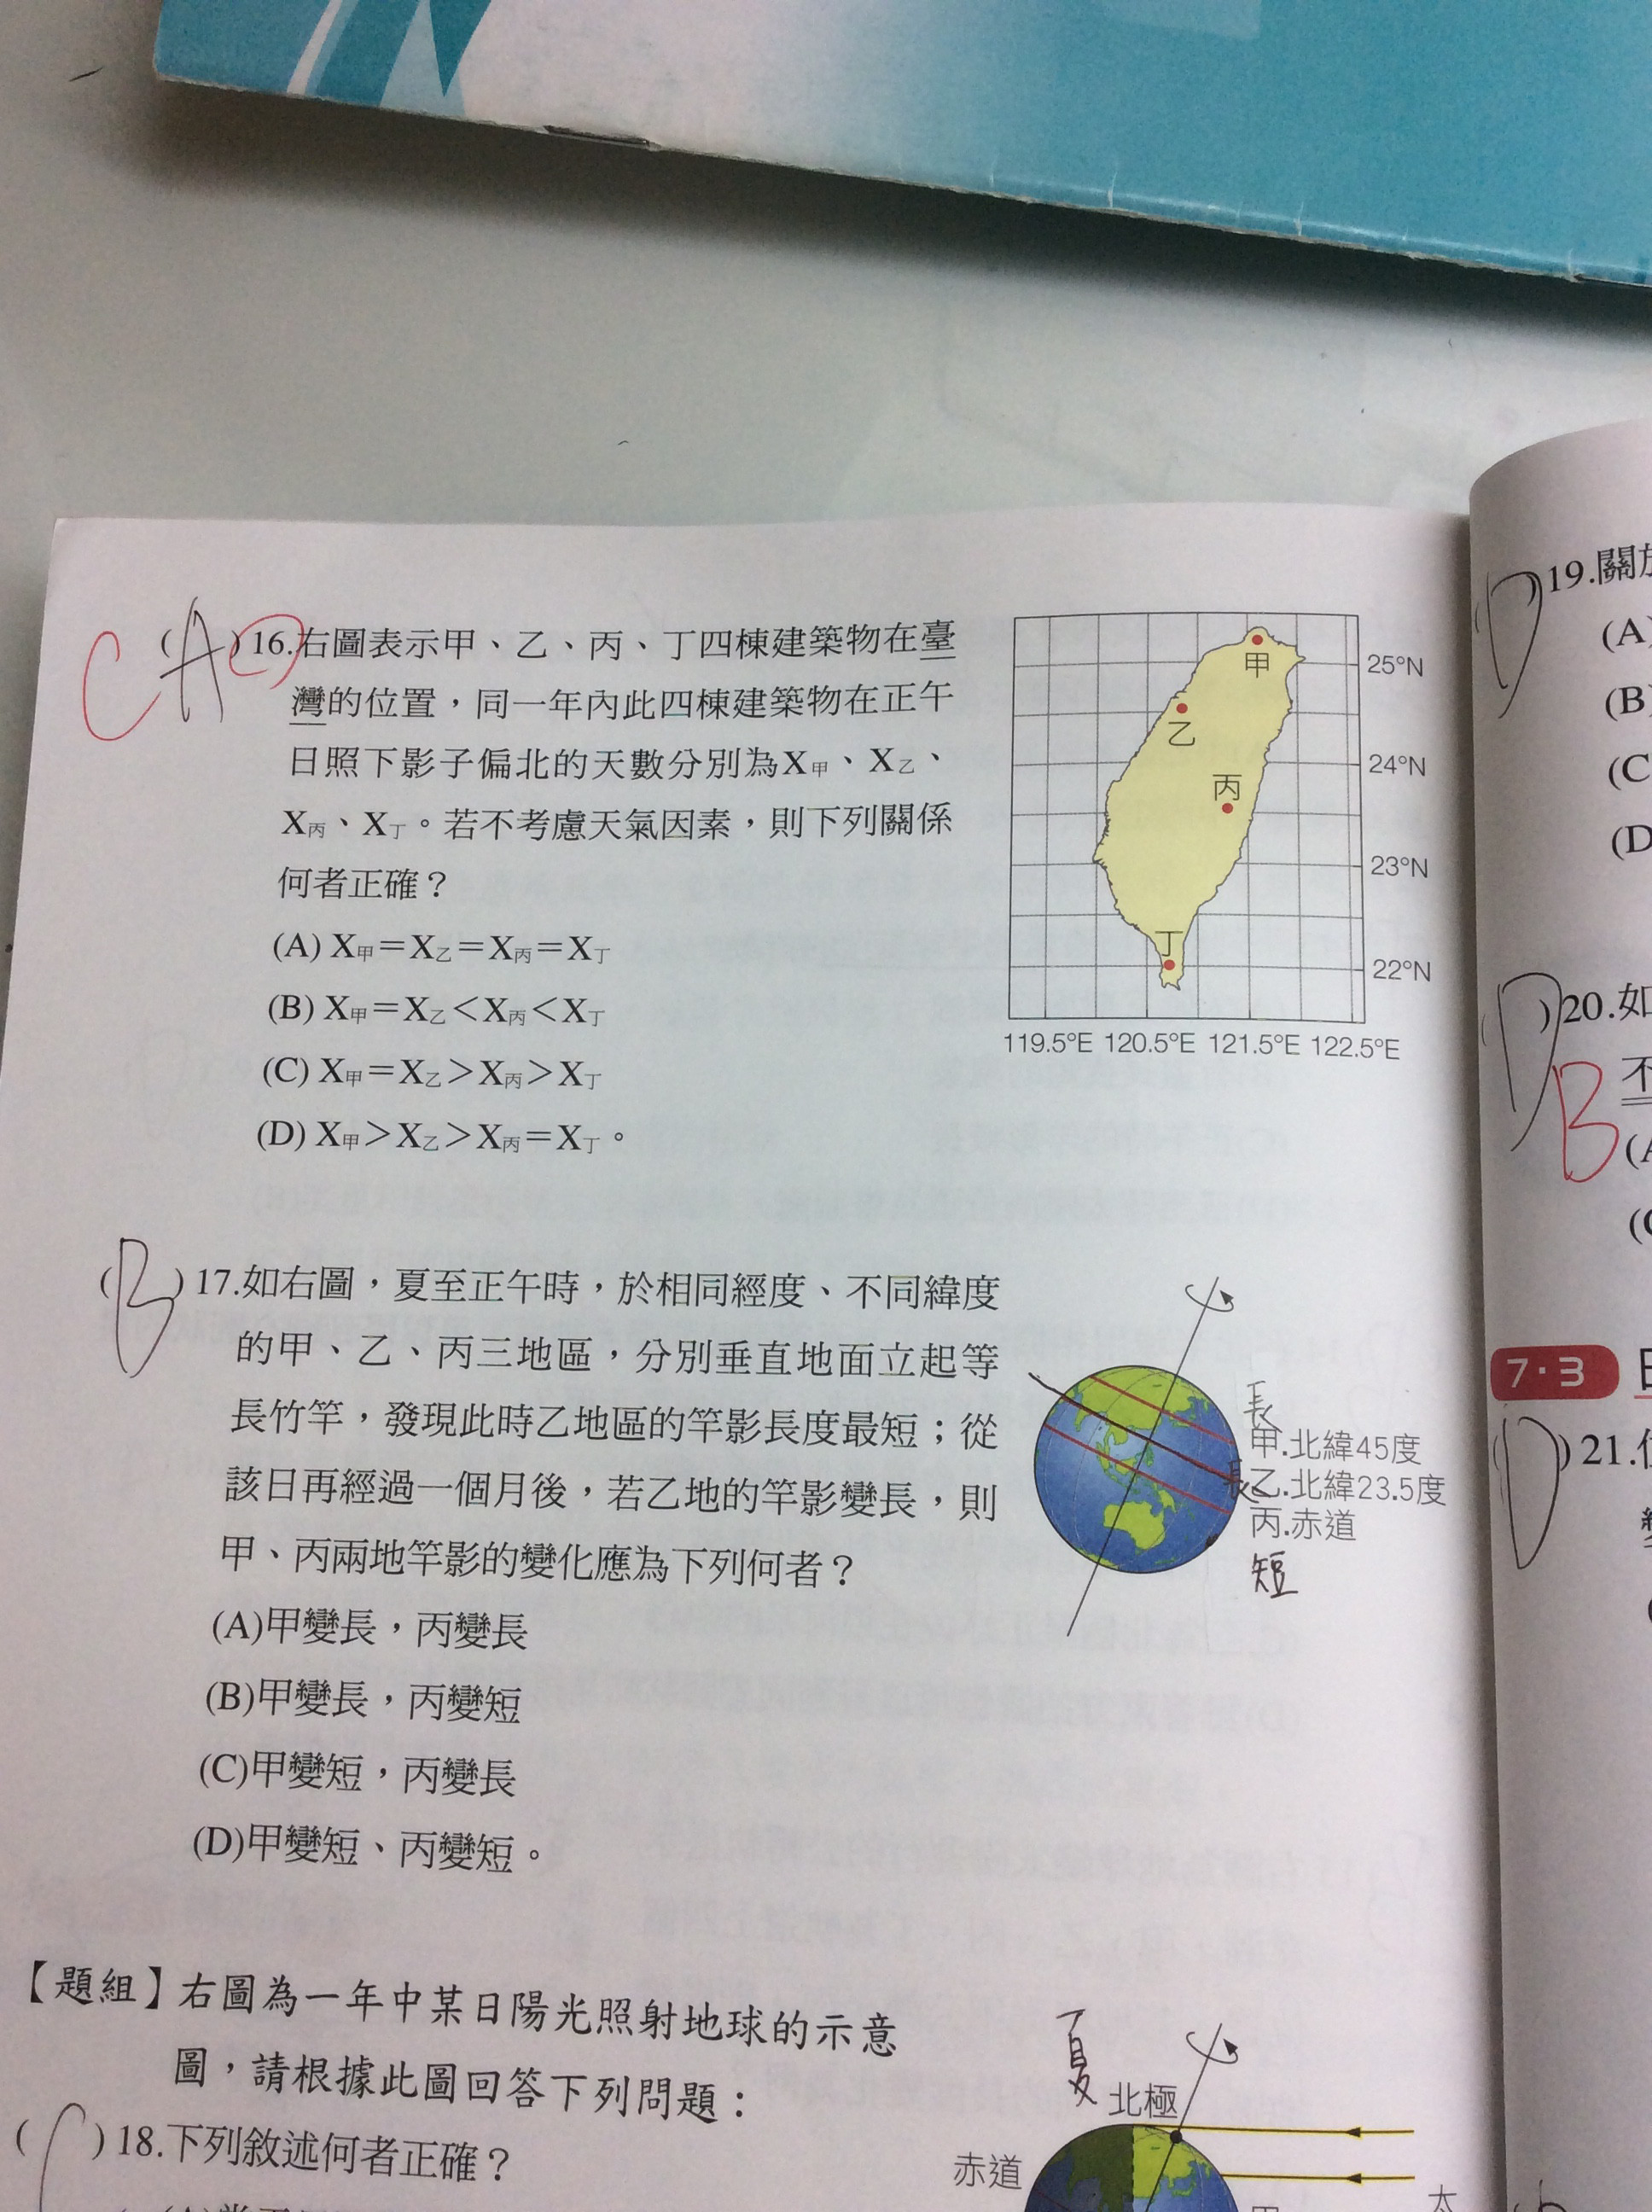 CA
( )16.右圖表示甲、乙、丙、丁四棟建築物在臺
灣的位置,同一年內此四棟建築物在正午
日照下影子偏北的天數分別為X甲、X乙、
X丙、X丁。若不考慮天氣因素,則下列關係
何者正確?
(A) X甲=X乙=X丙=X丁
(B) X甲=X乙<X丙<X丁
(C) X甲=X乙>X丙>X丁
(D) X甲>X乙>X丙=X丁。
甲
乙
丙
丁
25°N
24°N
23°N
22°N
119.5°E 120.5°E 121.5°E 122.5°E
(B)17.如右圖,夏至正午時,於相同經度、不同緯度
的甲、乙、丙三地區,分別垂直地面立起等
長竹竿,發現此時乙地區的竿影長度最短;從
該日再經過一個月後,若乙地的竿影變長,則
甲、丙兩地竿影的變化應為下列何者?
(A)甲變長,丙變長
(B)甲變長,丙變短
(C)甲變短,丙變長
(D)甲變短、丙變短。
長
甲.北緯45度
長乙.北緯23.5度
丙.赤道
短
【題組】右圖為一年中某日陽光照射地球的示意
圖,請根據此圖回答下列問題:
( )18.下列敘述何者正確?
夏
北極
赤道
太
(D)19.關於
(A)
(B)
(C
(D
(D)20.如
B
不
(A
(C
7·3
(D)21.位